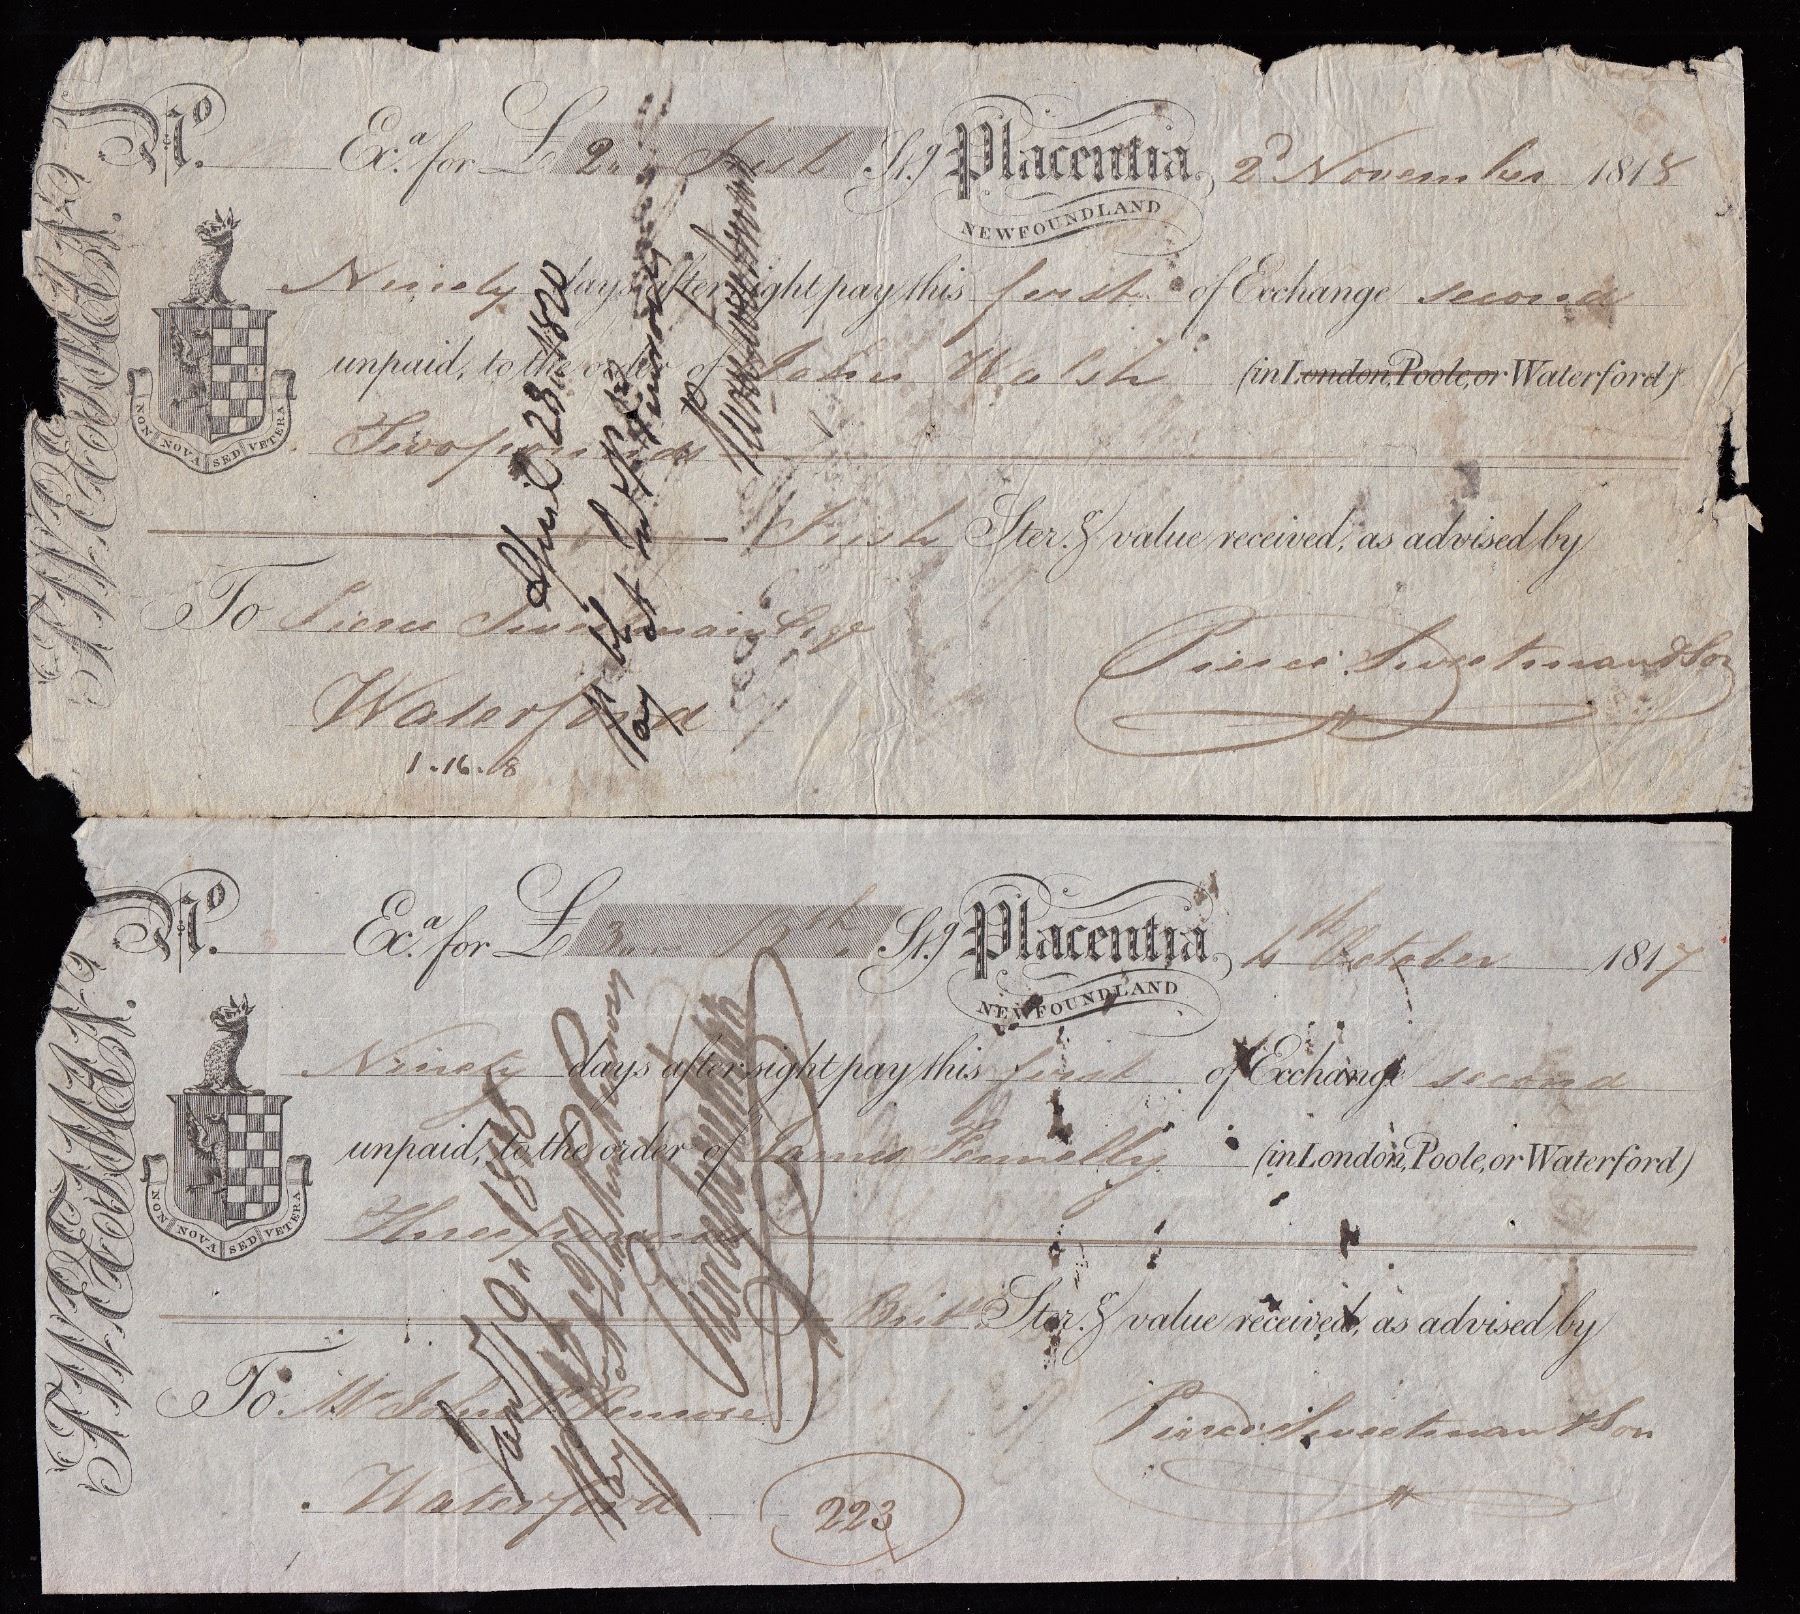 No. Exa. for £ 2 " " Irish St.g Placentia, 2d November 1818
NEWFOUNDLAND
SWEETMAN.
Ninety days after sight pay this first of Exchange second
unpaid, to the order of John Walsh (in London, Poole, or Waterford)
NON NOVA SED VETERA
Two pounds
Irish Ster.g value received, as advised by
To Pierce Sweetman Esqr
Pierce Sweetman & Son
Waterford
1..16..8
April 23 1820
Pay
No. Exa. for £ 3 " " Bsh St.g Placentia, 4th October 1817
NEWFOUNDLAND
SWEETMAN.
Ninety days after sight pay this first of Exchange second
unpaid, to the order of James Fennelly (in London, Poole, or Waterford)
NON NOVA SED VETERA
Three pounds
Brit Ster.g value received, as advised by
To Mr John P Penrose
Pierce Sweetman & Son
Waterford
223
Pay